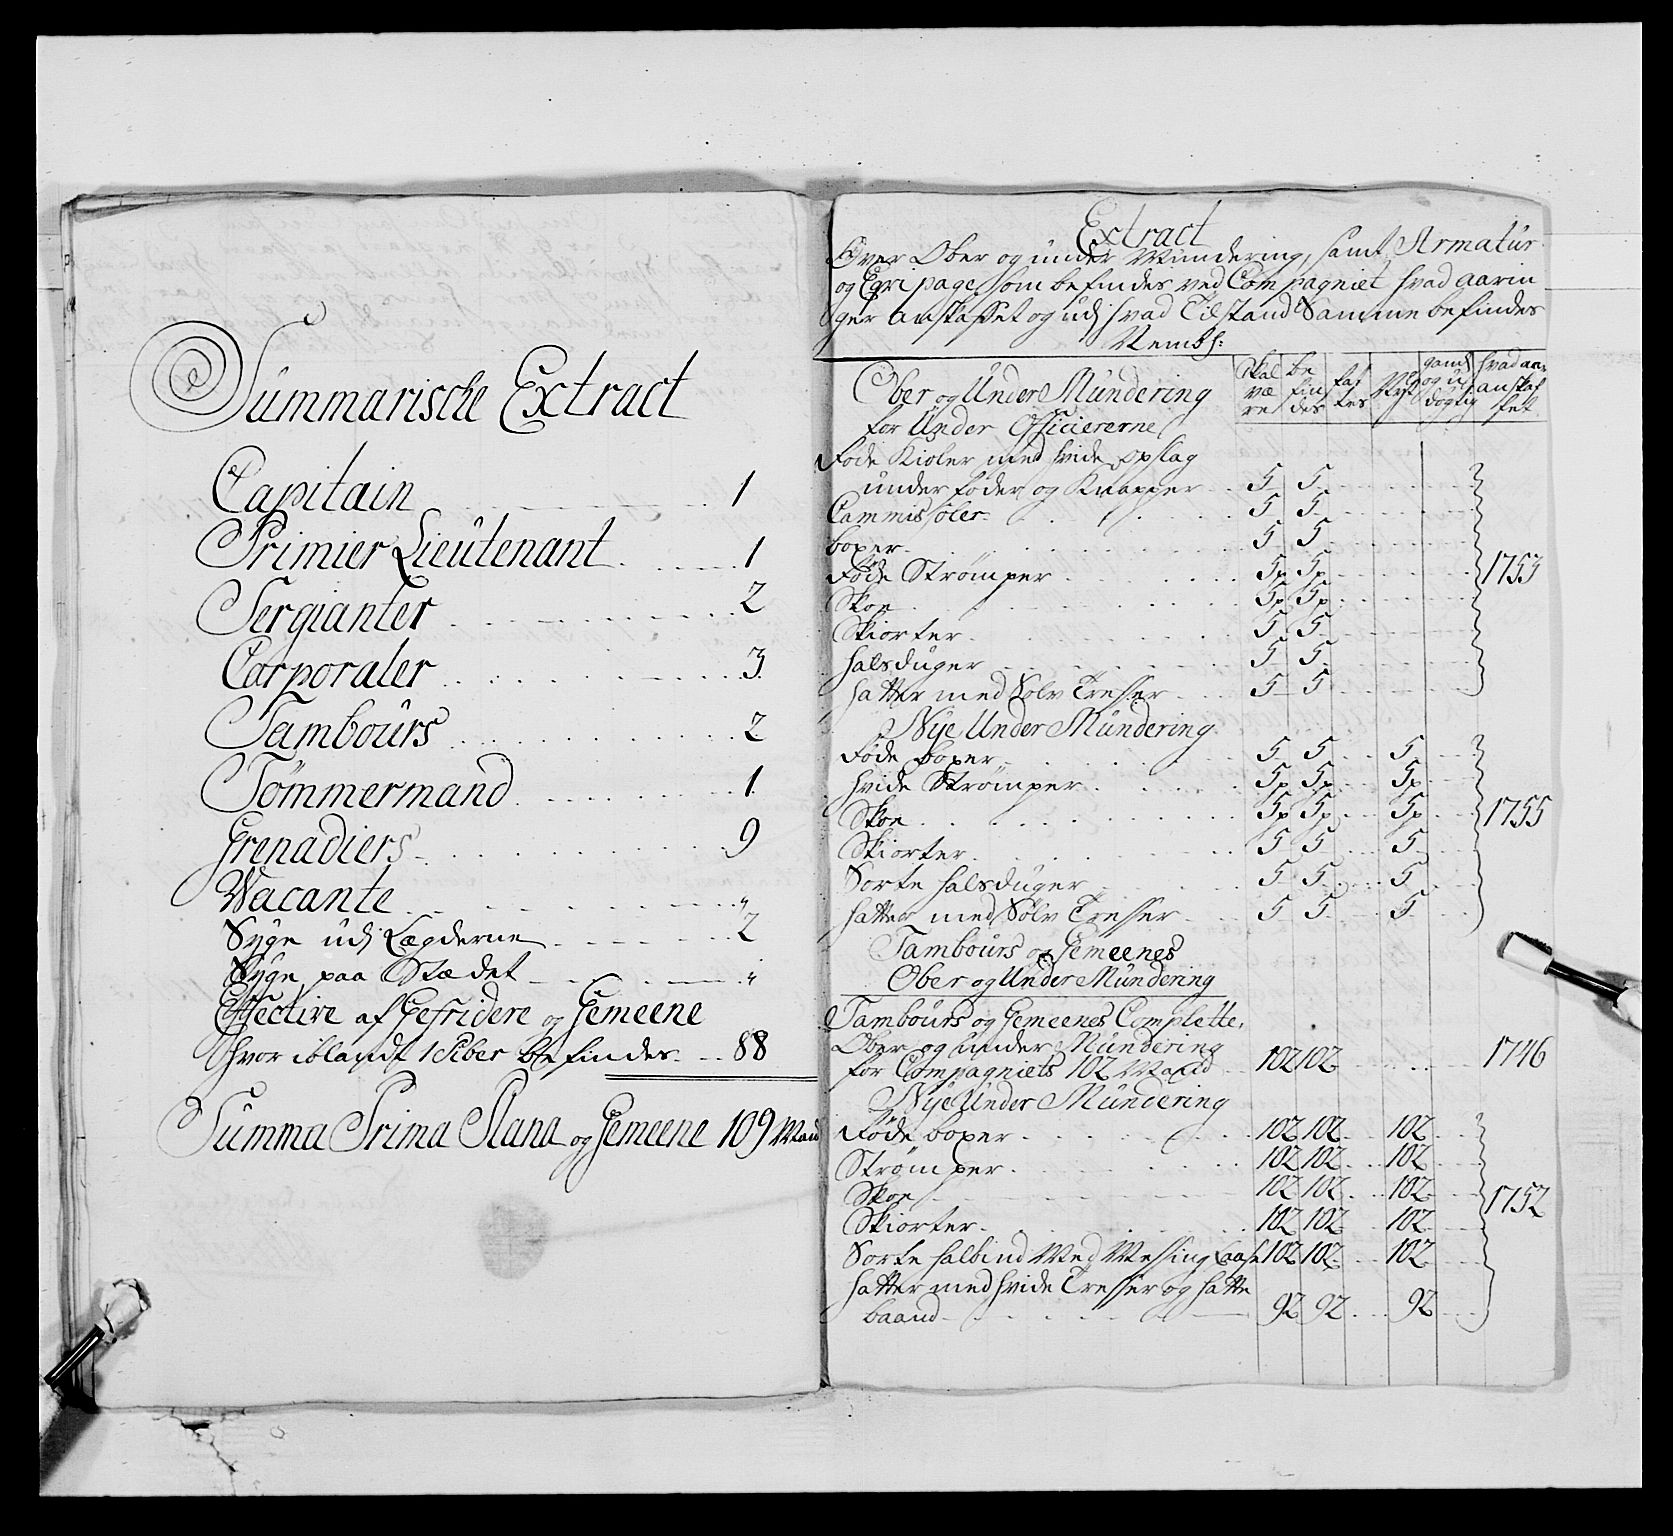 Summarische Extract
Capitain 1
Primier Lieutenant 1
Sergianter 2
Corporaler 3
Tambours 2
Tömmermand 1
Grenadiers 9
Vacante "
Syge udj Lægderne 2
Syge paa Stædet "
Effective af Gefridere og Gemeene
hvor iblandt 1 Piber befindes 88
Summa Prima Plana og Gemeene 109 Mand
Extract
Over Ober og under Mundering, samt Armatur
og Eqvipage som befindes ved Compagniet hvad aarin
ger anskaffet og udj hvad Tilstand Samme befindes
Nembl:
Ober og Under Mundering
for Under Officiererne
Skal være
befindes
fattes
Nyt
gandske og udögtig
hvad aar anskaffet
Röde Kioler med hvide Opslag
under foder og Knapper 5 5
Cammisoler 5 5
boxer 5 5
Röde Strømper 5p 5p 1753
Skoe 5p 5p
Skiorter 5 5
halsduger 5 5
hatter med Sølv Tresser 5 5
Nye Under Mundering
Röde boxer 5 5 5
hvide Strømper 5p 5p 5p
Skoe 5p 5p 5p 1755
Skiorter 5 5 5
Sorte halsduger 5 5 5
hatter med Sølv Tresser 5 5 5
Tambours og Gemeenes
Ober og Under Mundering
Tambours og Gemeenes Complette
Ober og under Mundering
for Compagniets 102 Mand 102 102 1746
Nye Under Mundering
Röde boxer 102 102 102
Strømper 102 102 102
Skoe 102 102 102 1752
Skiorter 102 102 102
Sorte halsbind Med Messing Laase 102 102 102
hatter med hvide Tresser og hatte
baand 92 92 92